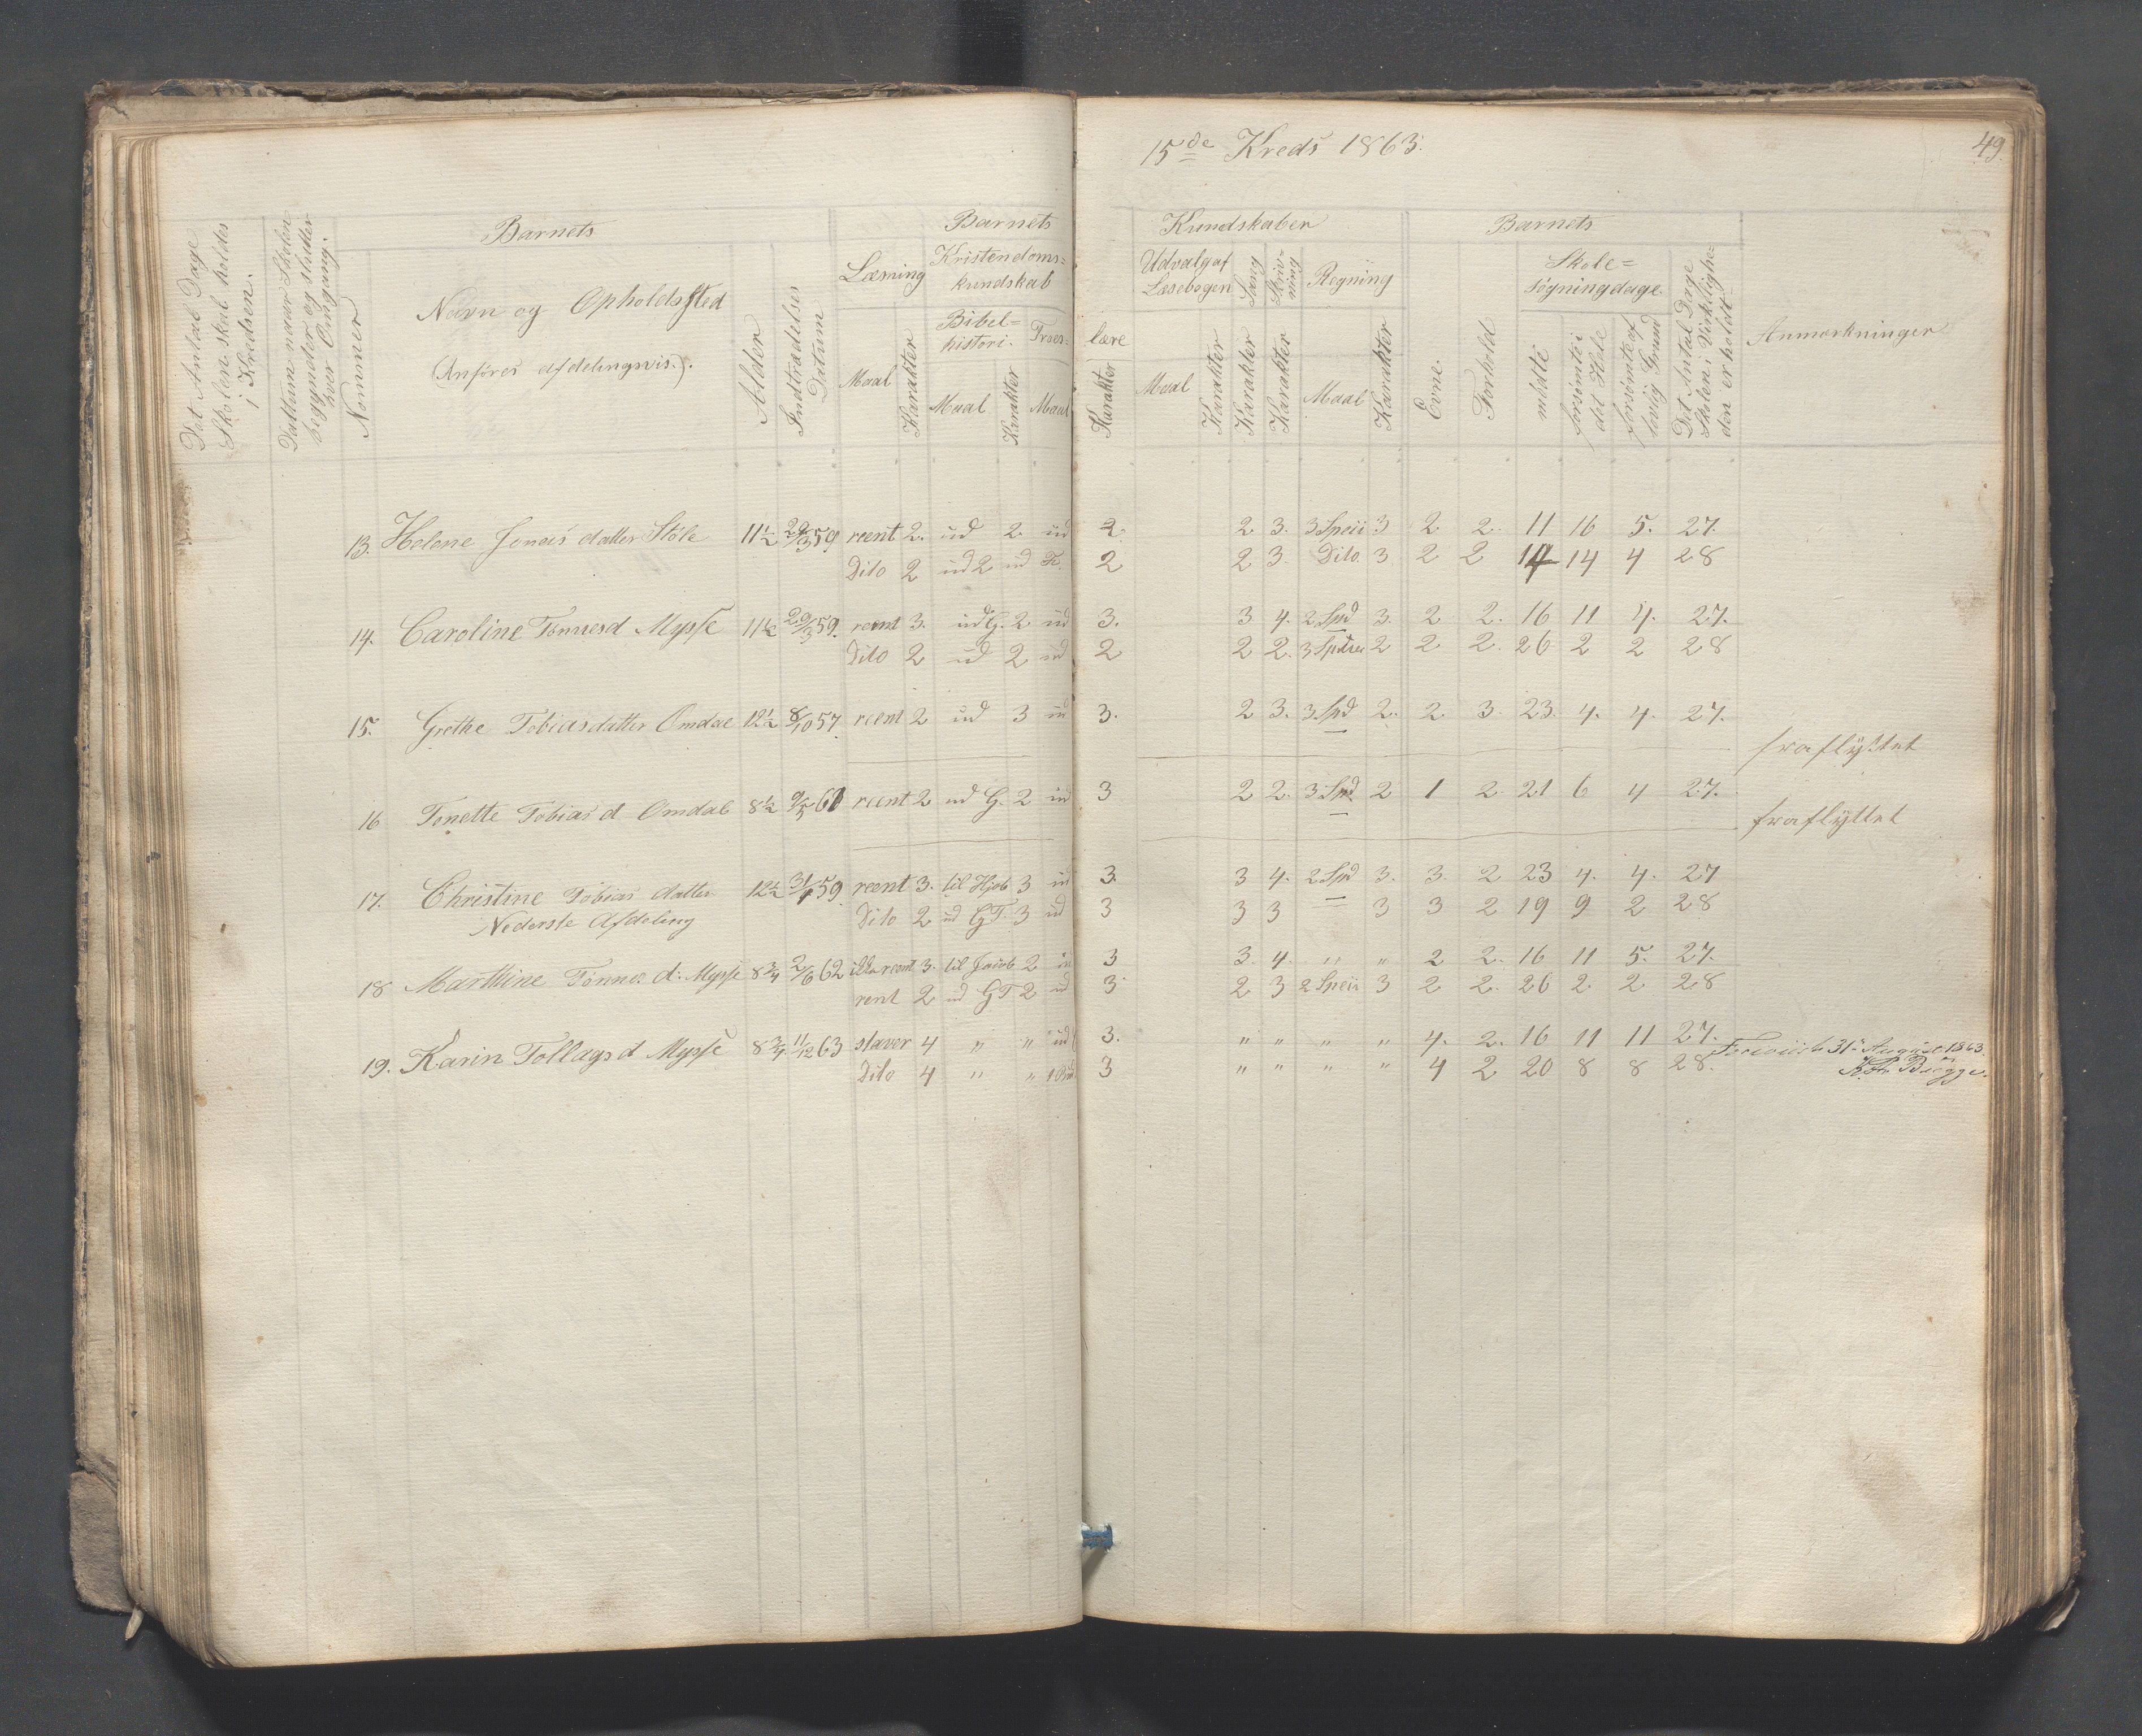 15de Kreds 1863.
49.
Det Antal Dage Skolen skal holdes i Kredsen.
Datum naar Skolen begynder og slutter hver Omgang.
Nommer
Barnets
Navn og Opholdssted
(Anföres afdelingsvis.).
Alder
Indtrædelses Datum
Barnets
Kundskaber
Læsning
Kristendoms= kundskab
Maal
Karakter
Bibel= histori.
Maal
Karakter
Troes= lære
Maal
Karakter
Udvalg af Læsebogen
Maal
Karakter
Sang
Karakter
Skriv= ning
Karakter
Regning
Maal
Karakter
Barnets
Evne.
Forhold
Skole= søgningdage.
mödte
forsömte i det Hele
forsömte af lovlig Grund
Det Antal Dage Skolen i Virkelighe= den er holdt
Anmærkninger
13. Helene Jonas datter Støle 11½ 29/3 59 reent 2. ud 2. ud 2. 2 3. 3 Speii 3 2 2. 11 16 5. 27.
Dito 2 ud 2 ud 2 2 3. Dito. 3 2 2 14 14 4 28
14. Caroline Tønnesd Mysse 11½ 29/3 59. reent 3. ud G. 2 ud 3. 3 4. 2 Spd 3. 2 2. 16 11 4. 27.
Dito 2 ud 2 ud 2 2 2. 3 2 2 2. 26 2 2 28
15. Grethe Tobiasdatter Omdal 12½ 8/10 57. reent 2 ud 3 ud 3. 2 3. 3 Spd 2. 2 3 23. 4. 4. 27.
fraflÿttet
16 Tonette Tobias d Omdal 8½ 9/5 61 reent 2 ud G. 2 ud 3 2 2. 3 Spd. 2 1 2. 21 6 4 27.
fraflyttet
17. Christine Tobias datter 12½ 59. reent 3. til Hjob 3 ud 3. 3 4. 2 Spd 3. 3. 2 23 4. 4. 27
Nederste Afdeling
Dito 2 ud GT. 3 ud 3 3 3 — 3 3 2 19 9 2 28
18 Marthine Tönnes d: Mysse 8¾ 2/6 62 ikke reent 3. til Jacob 2 ud 3 3. 4. " " 2 2. 16 11 5. 27.
rent 2 ud GT 2 ud 3 2 3 2 Speii 3 2 2. 26 2 2 28
19. Karin Tollags d Mysse 8¾ 11/12 63 staver 4 " " ud 3. " " " " 4. 2. 16 11 11 27.
Dito 4 " " 3 " " " " 4 2 20 8 8 28.
31te August 1863.